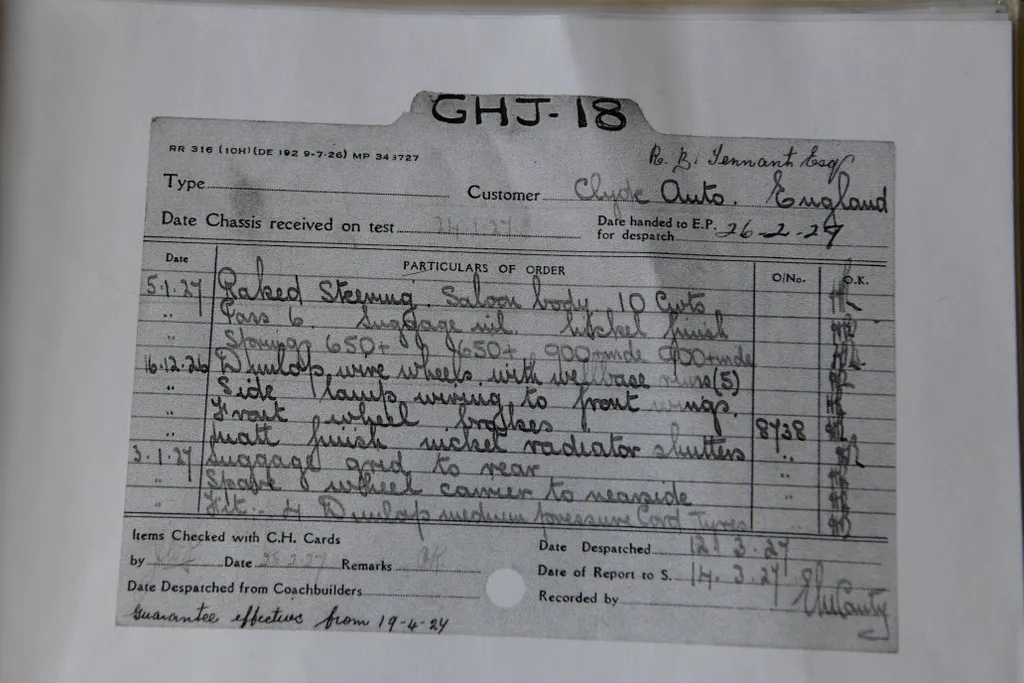 GHJ-18
RR 316 (10H) (DE 192 9-7-26) MP 343727
R. B. Tennant Esq
Type
Customer Clyde Auto. England
Date Chassis received on test
Date handed to E.P. for despatch 26-2-27
Date PARTICULARS OF ORDER O/No. O.K.
5.1.27 Raked Steering. Saloon body 10 Cwts
" Pass 6. Luggage nil. Nickel finish
" 650+ 650+ 900+
16.12.26 Dunlop wire wheels with wellbase rims (5)
" Side lamp wiring to front wings.
" Front wheel brakes 8738
" Matt finish nickel radiator shutters "
3.1.27 Luggage grid to rear
" Spare wheel carrier to nearside "
" Fit 4 Dunlop medium pressure Cord Tyres
Items Checked with C.H. Cards
by Date Remarks
Date Despatched 12.3.27
Date of Report to S. 14.3.27
Date Despatched from Coachbuilders
Recorded by
Guarantee effective from 19-4-27